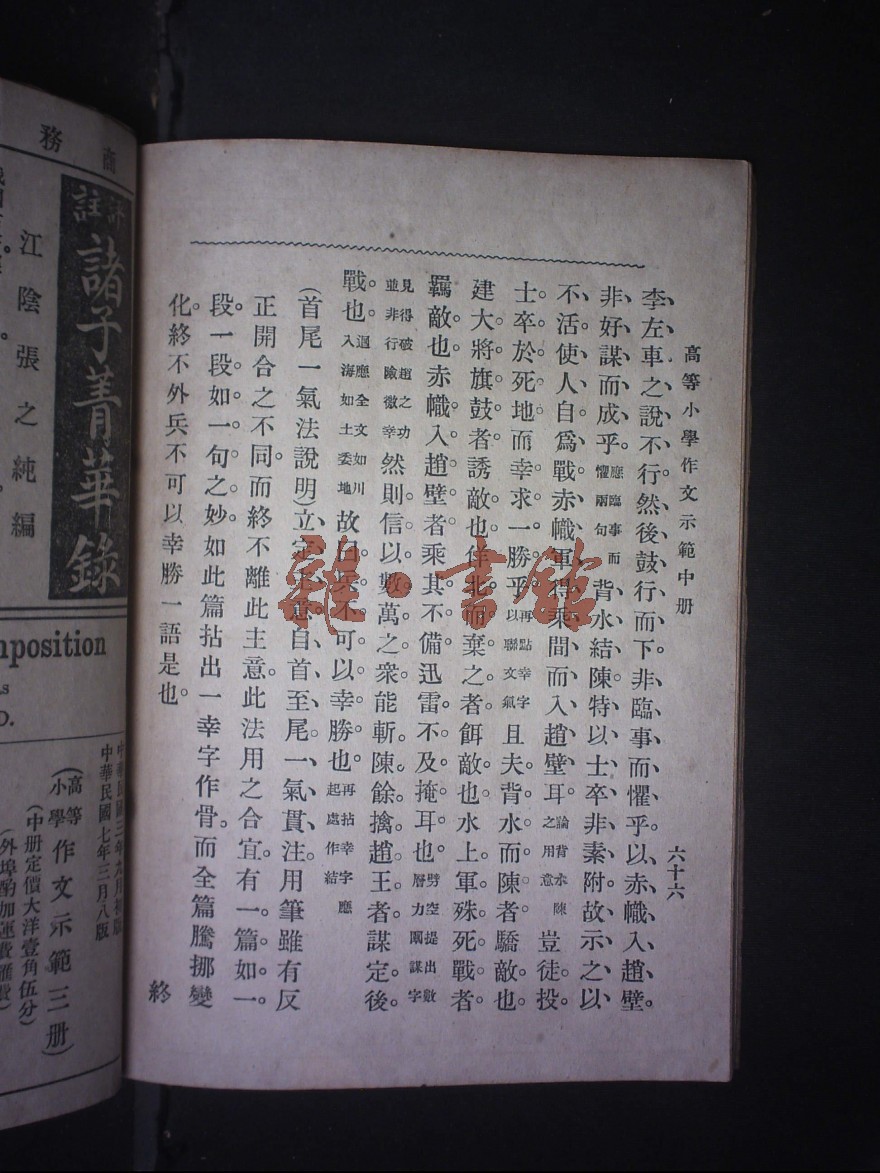 高等小學作文示範中册
六十六
李左車之說不行、然後鼓行而下、非臨事而懼乎。以赤幟入趙壁。
非好謀而成乎。應臨事而懼兩句背水結陳、特以士卒非素附、故示之以
不活、使人自爲戰、赤幟軍得乘間而入趙壁耳。論背水陳之用意豈徒投
士卒於死地而幸求一勝乎。再點幸字以聯文氣且夫背水而陳者驕敵也。
建大將旗鼓者誘敵也。佯北而棄之者餌敵也。水上軍殊死戰者
羈敵也。赤幟入趙壁者乘其不備迅雷不及掩耳也。劈空提出數層力闡謀字
見得破趙之功並非行險徼幸然則信以數萬之衆能斬陳餘擒趙王者謀定後
戰也。迴應全文如川入海如土委地故曰兵不可以幸勝也。再拈幸字應起處作結
(首尾一氣法說明)立定主意、自首至尾、一氣貫注、用筆雖有反
正開合之不同、而終不離此主意。此法用之合宜。有一篇如一
段。一段如一句之妙。如此篇拈出一幸字作骨。而全篇騰挪變
化。終不外兵不可以幸勝一語是也。
終
商務
評註
諸子菁華錄
江陰張之純編
position
中華民國三年九月初版
中華民國七年三月八版
(高等小學作文示範三册)
(中册定價大洋壹角伍分)
(外埠酌加運費匯費)